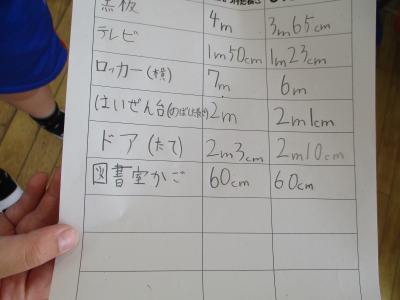 黒板 4m 3m65cm
テレビ 1m50cm 1m23cm
ロッカー(横) 7m 6m
はいぜん台(のばした長さ) 2m 2m1cm
ドア(たて) 2m3cm 2m10cm
図書室かご 60cm 60cm